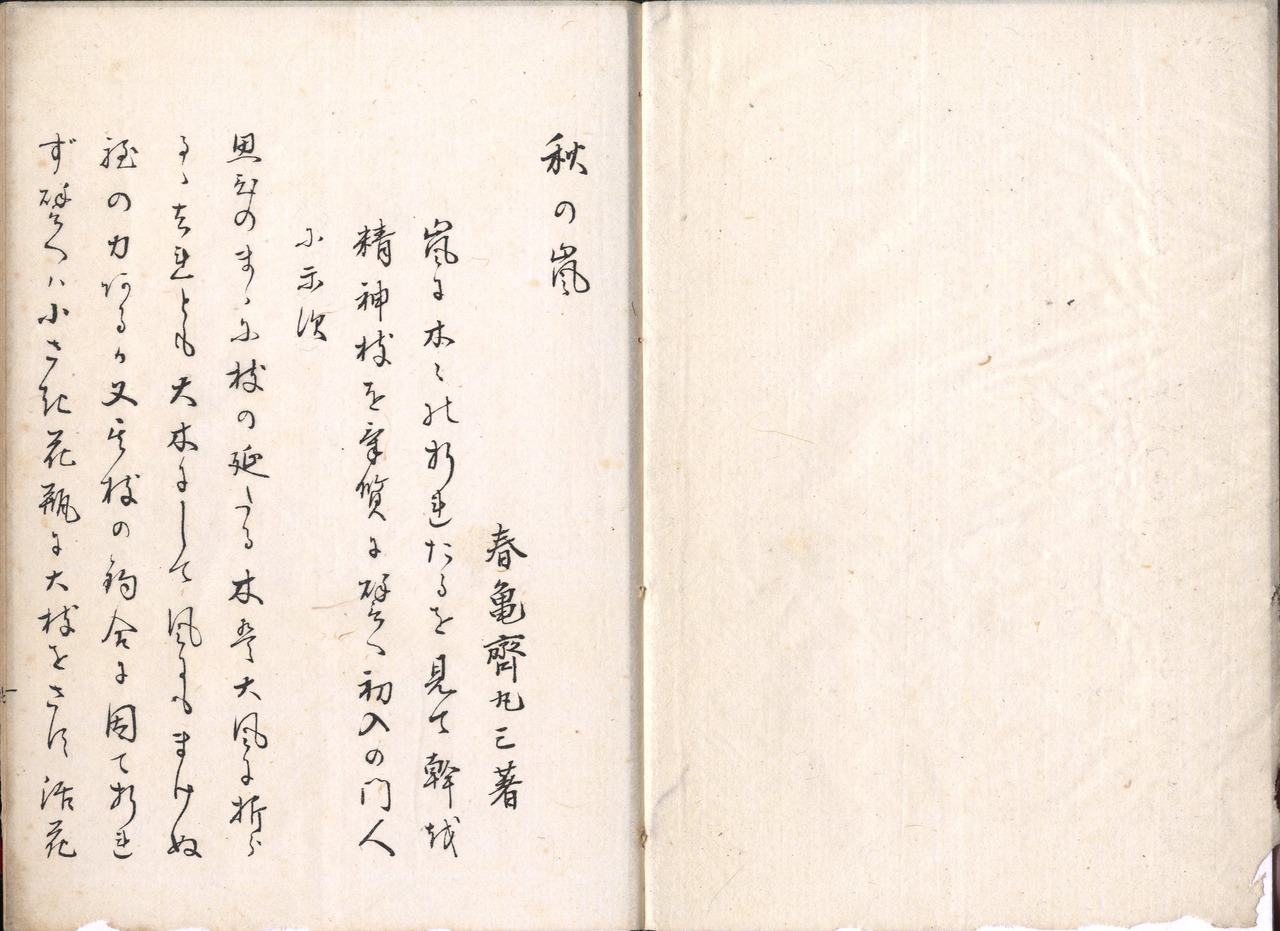 秋の嵐
春亀齊九三著
嵐に木々の折れたるを見て幹を
精神枝を気質に譬へ初入の門人
に示す
思ひのまゝに枝の延たる木々大風に折ら
るゝされとも大木にして風にもまけぬ
の力あるか又其枝の釣合に因て折れ
ず譬へハ小さき花瓶に大枝をさし活花